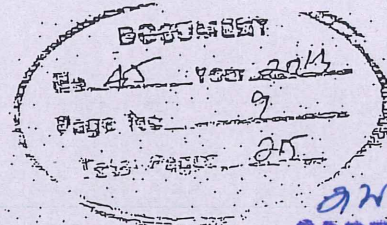 DOCUMENT
No. 45 Year 2014
Page No. 9
Total Pages 25